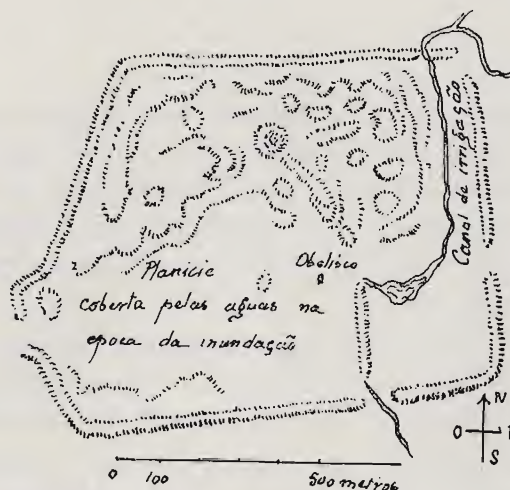 Canal de irrigação
Planicie
Obelisco
coberta pelas aguas na
epoca da inundação
N
O
S
0 100 500 metros